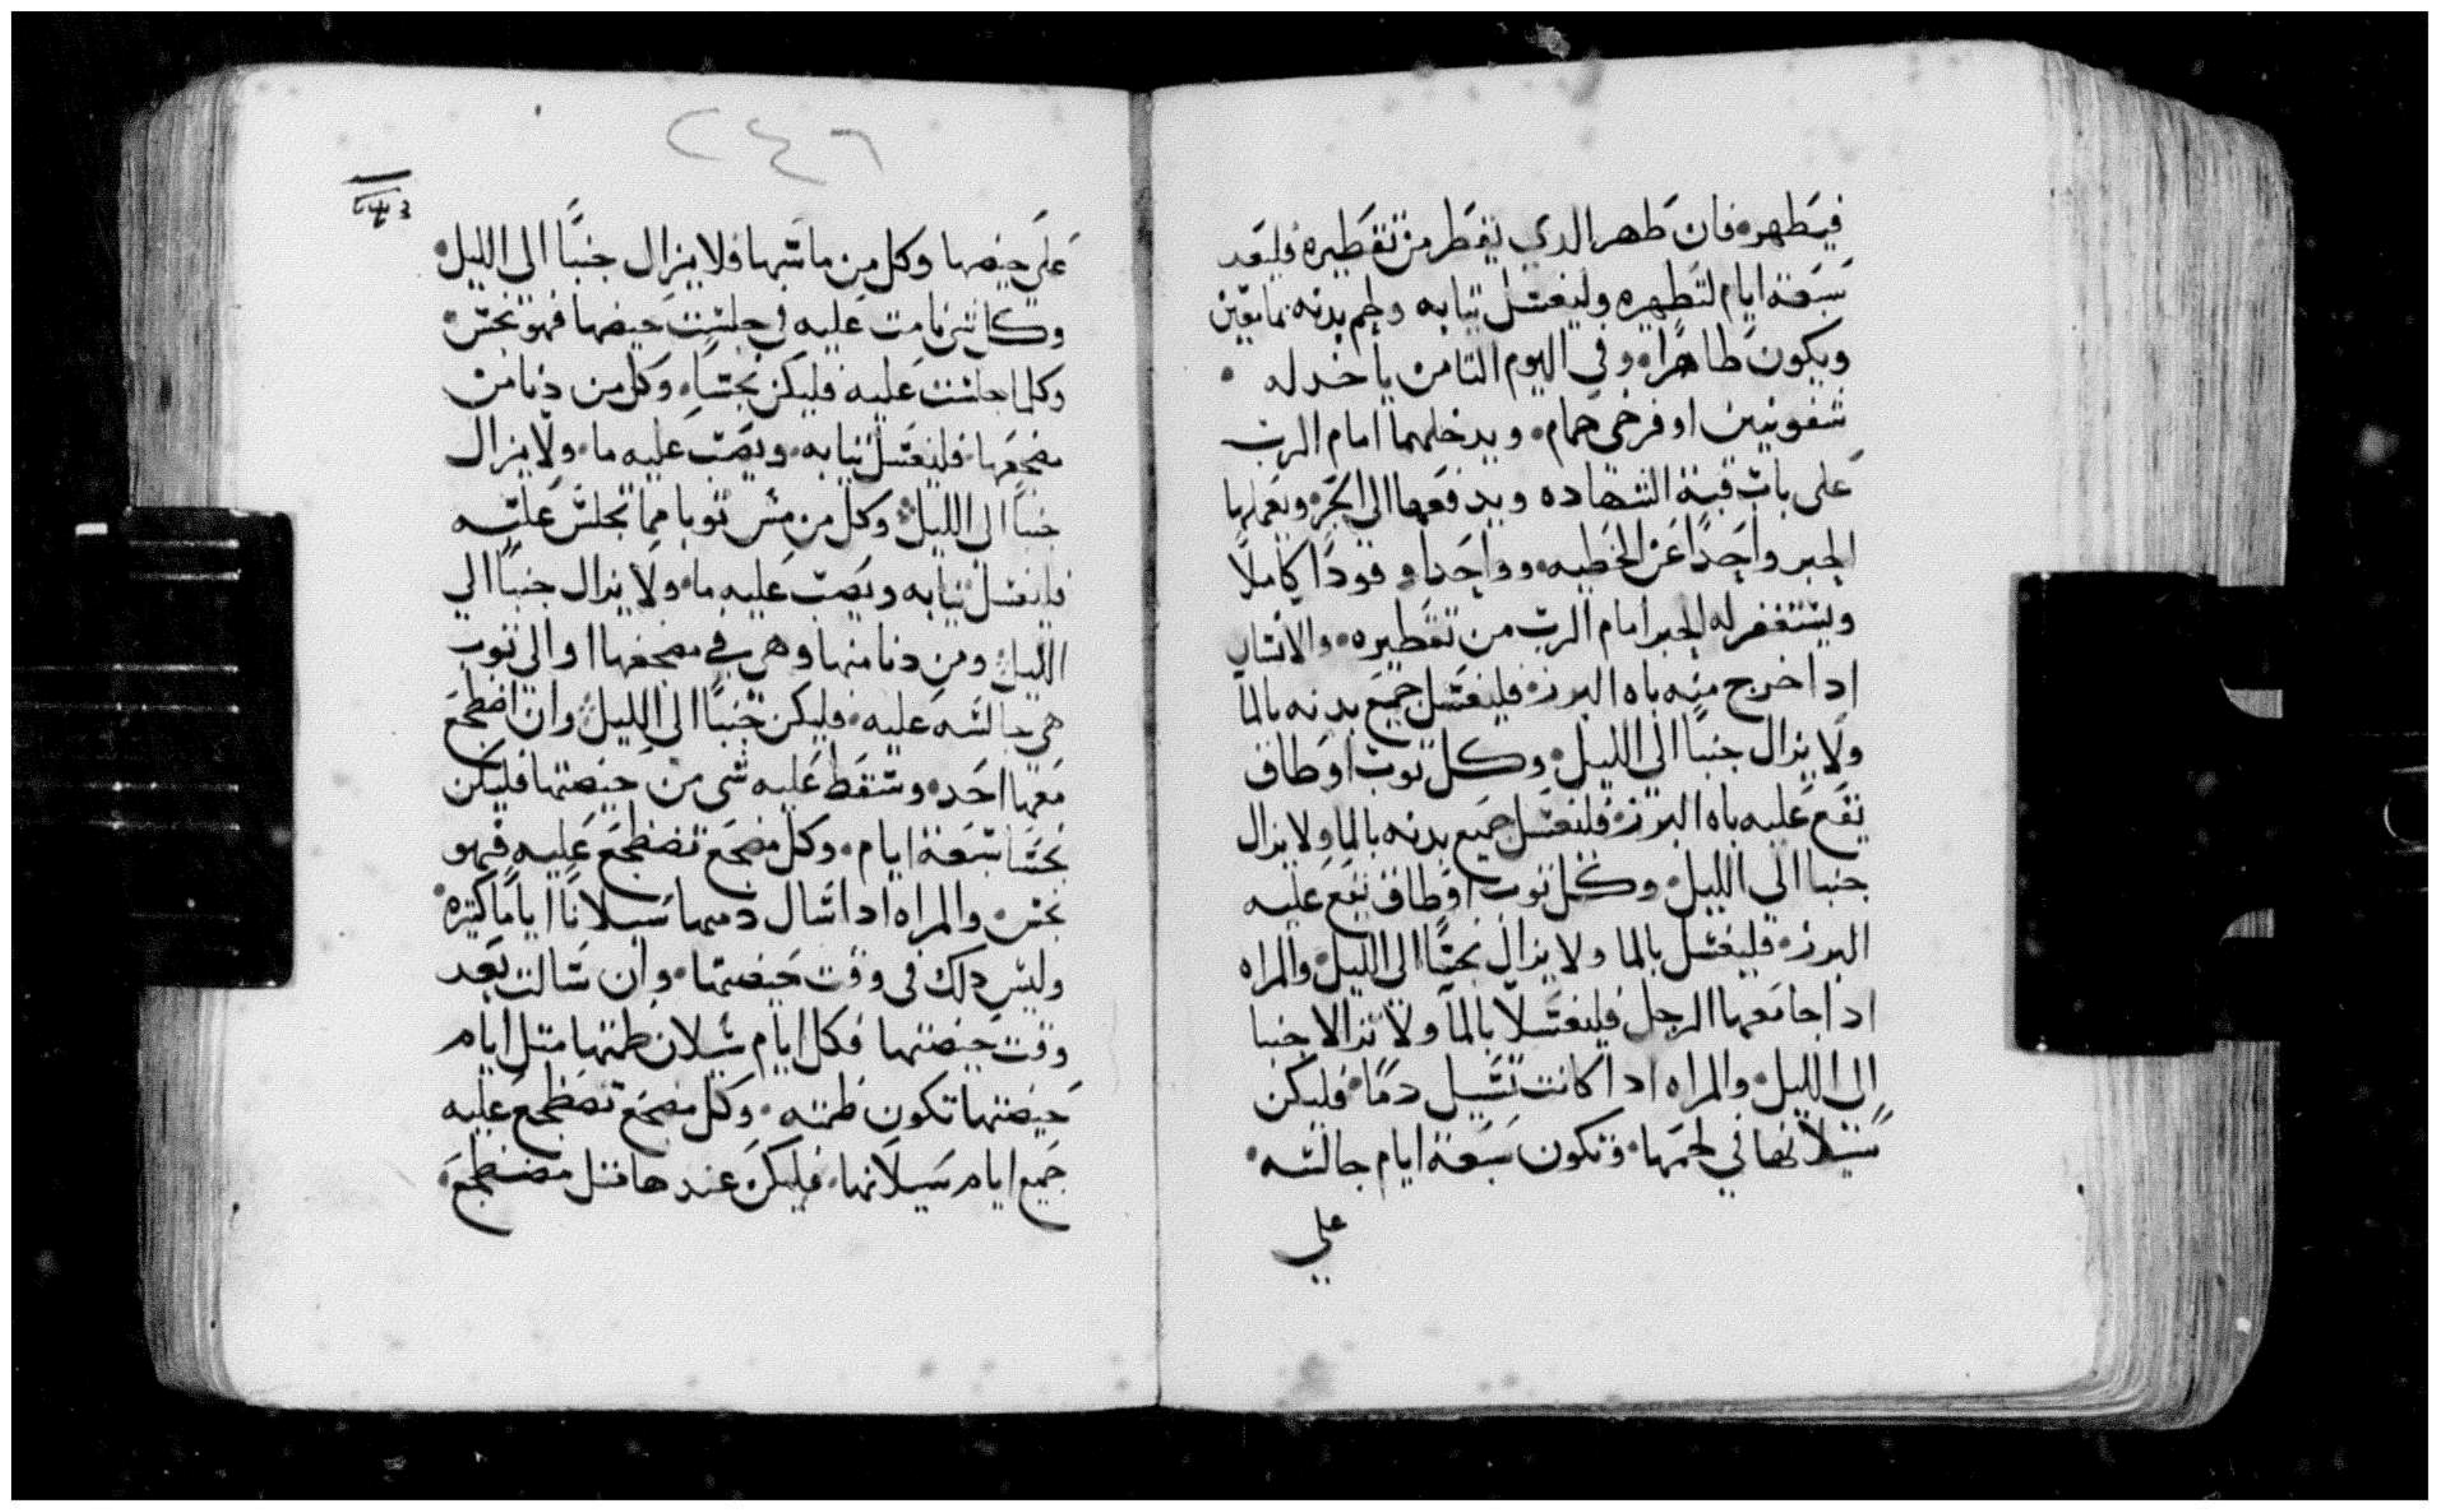 فيتطهر۰ فان طهر الدي يقطر من تقطيره فليعد
سبعة ايام لتطهيره وليغتسل تيابه ولحم بدنه بما معين
ويكون طاهرًا۰ وفي اليوم التامن ياخد له ۰
شفونيين او فرخي حمام۰ ويدخلهما امام الرب
على باب قبة الشهاده ويدفعها الى الحبر ويعملها
الحبر واحدًا عن الخطيه۰ وواحدا وقودًا كاملًا
ويستغفر له الحبر امام الرب من تقطيره۰ والانسان
ادا خرج منه باه البرز۰ فليغسل جميع بدنه بالما
ولا يزال جنبًا الى الليل۰ وكل توب او طاق
يقع عليه باه البرز۰ فليغسل جميع بدنه بالما ولا يزال
جنبا الى الليل۰ وكل توب او طاق يقع عليه
البرز۰ فليغسل بالما ولا يزال نجسًا الى الليل۰ والمراه
ادا جامعها الرجل فليغتسلا بالما ولا يزالا جنبا
الى الليل۰ والمراه ادا كانت تسيل دمًا۰ فليكن
سيلانها في لحمها۰ وتكون سبعة ايام جالسه۰
على
٢٤٦
على حيضها وكل من ماسها فلا يزال جنبًا الى الليل۰
وكل شي نامت عليه في جلست حيضها فهو نجس۰
وكلما جلست عليه فليكن نجسًا۰ وكل من دنا من
مضجعها۰ فليغسل تيابه۰ ويصب عليه ما۰ ولا يزال
جنبًا الى الليل۰ وكل من مس توبا مما تجلس عليه
فليغسل تيابه ويصب عليه ما۰ ولا يزال جنبًا الي
الليل۰ ومن دنا منها وهي في مضجعها او الى توب
هي جالسه عليه۰ فليكن جنبًا الى الليل۰ وان اضطجع
معها احد۰ وسقط عليه شي من حيضتها فليكن
نجسًا سبعة ايام۰ وكل مضجع تضطجع عليه فهو
نجس۰ والمراه ادا سال دمها سيلانًا ايامًا كتيره۰
وليس دلك في وقت حيضتها۰ وان سالت بعد
وقت حيضتها فكل ايام سيلان طمتها متل ايام
حيضتها تكون طمته۰ وكل مضجع تضطجع عليه
جميع ايام سيلانها۰ فليكن عندها متل مضطجع۰